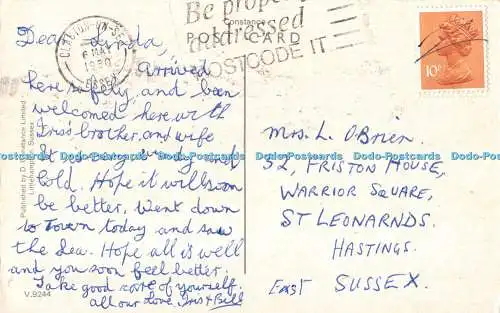 Be properly
addressed
POSTCODE IT
Constance
POST CARD
CLACTON-ON-SEA
MAY
1980
ESSEX
10P
Dear Linda,
Arrived
here safely, and been
welcomed here with
Iris brother, and wife
It is very windy and
Cold. Hope it will soon
be better, went down
to Town today and saw
the Sea. Hope all is well
and you soon feel better,
Take good care of yourself.
all our love. Iris & Bill
Mrs. L. O'Brien
52, FRISTON HOUSE,
WARRIOR SQUARE,
ST LEONARNDS.
HASTINGS.
EAST SUSSEX.
Published by D. Constance Limited
Littlehampton, Sussex
V.9244
Dodo-Postcards Dodo-Postcards Dodo-Postcards Dodo-Postcards Dodo-Postcards